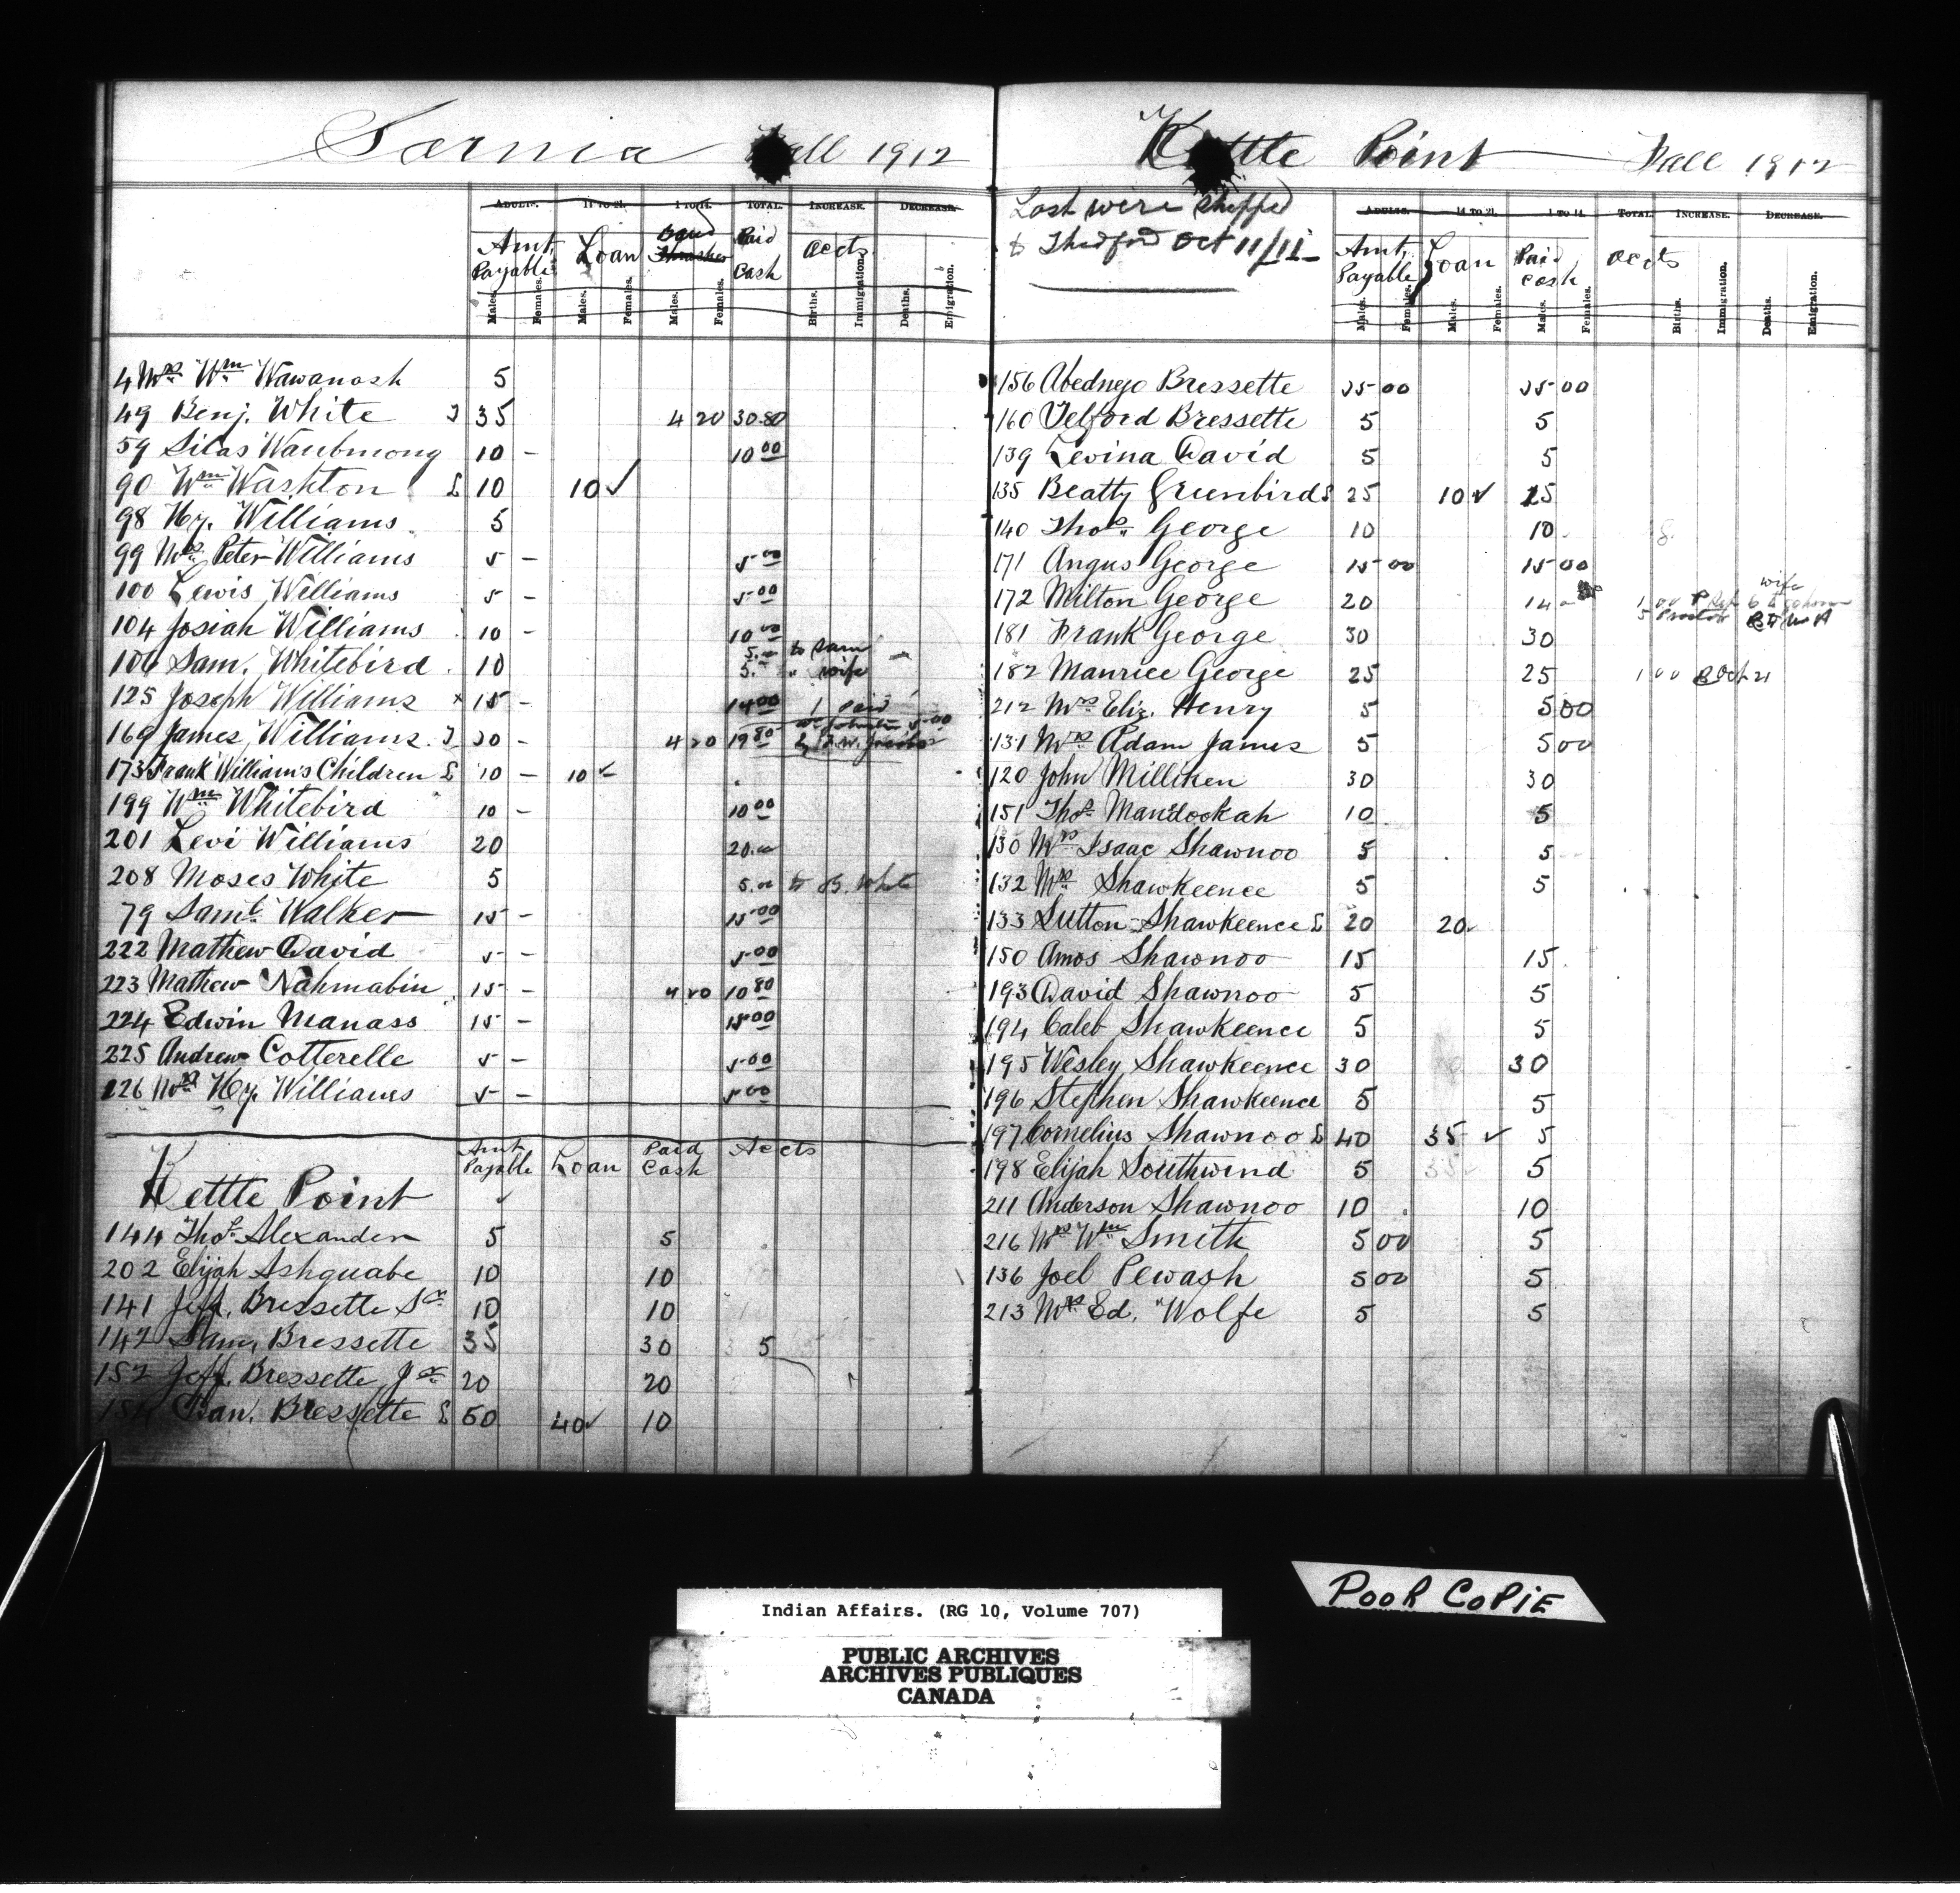 Sarnia Fall 1912
ADULTS. 14 TO 21. 1 TO 14. TOTAL. INCREASE. DECREASE.
Amt. Payable Loan Band Thrasher Paid Cash accts
Males. Females. Males. Females. Males. Females. Births. Immigration. Deaths. Emigration.
4 Mrs Wm Wawanosh 5
49 Benj. White T 35 4 20 30.80
59 Silas Waubmong 10 - 10 00
90 Wm Washton L 10 10 ✓
98 Hy. Williams 5
99 Mrs Peter Williams 5 - 5 00
100 Lewis Williams 5 - 5 00
104 Josiah Williams 10 - 10 00
106 Sam. Whitebird 10 5.00 to Sam
5.00 " wife
125 Joseph Williams x 15 - 14 00 1 Paid
169 James Williams T 20 - 4 20 19 80
173 Frank Williams Children L 10 - 10 ✓
199 Wm Whitebird 10 - 10 00
201 Levi Williams 20 20.00
208 Moses White 5 5.00 to B. White
79 Saml. Walker 15 - 15 00
222 Mathew David 5 - 5 00
223 Mathew Nahmabin 15 - 4 20 10 80
224 Edwin Manass 15 - 15 00
225 Andrew Cotterelle 5 - 5 00
226 Mrs Hy. Williams 5 - 5 00
Amt Payable Loan Paid Cash Accts
Kettle Point
144 Thos. Alexander 5 5
202 Elijah Ashquabe 10 10
141 Jeff. Bressette Sr 10 10
142 Sam. Bressette 35 30 5
152 Jeff. Bressette Jr 20 20
154 Dan. Bressette L 50 40 ✓ 10
Kettle Point Fall 1912
Last were shipped
to Thedford Oct 11/11
ADULTS. 14 TO 21. 1 TO 14. TOTAL. INCREASE. DECREASE.
Amt. Payable Loan Paid Cash accts
Males. Females. Males. Females. Males. Females. Births. Immigration. Deaths. Emigration.
156 Abednego Bressette 25 00 25 00
160 Telford Bressette 5 5
139 Levina David 5 5
135 Beatty Greenbird L 25 10 ✓ 15
140 Thos. George 10 10
171 Angus George 15 00 15 00
172 Milton George 20 14
181 Frank George 30 30
182 Maurice George 25 25 1 00
212 Mrs Eliz. Henry 5 5 00
131 Mrs Adam James 5 5 00
120 John Milliken 30 30
151 Thos. Mandookah 10 5
130 Mrs Isaac Shawnoo 5 5
132 Mrs Shawkeence 5 5
133 Sutton Shawkeence L 20 20 ✓
150 Amos Shawnoo 15 15
193 David Shawnoo 5 5
194 Caleb Shawkeence 5 5
195 Wesley Shawkeence 30 30
196 Stephen Shawkeence 5 5
197 Cornelius Shawnoo L 40 35 ✓ 5
198 Elijah Southwind 5 5
211 Anderson Shawnoo 10 10
216 Mrs Wm Smith 5 00 5
136 Joel Pewash 5 00 5
213 Mrs Ed. Wolfe 5 5
POOR COPIE
Indian Affairs. (RG 10, Volume 707)
PUBLIC ARCHIVES
ARCHIVES PUBLIQUES
CANADA